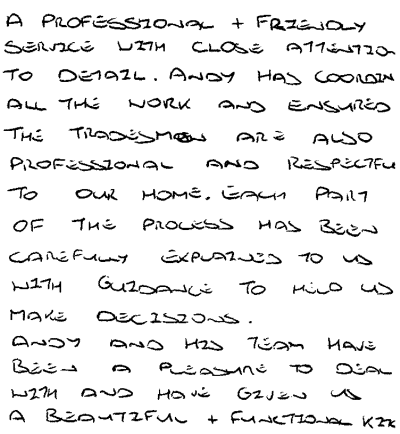 A PROFESSIONAL + FRIENDLY
SERVICE WITH CLOSE ATTENTIO
TO DETAIL. ANDY HAS COORDIN
ALL THE WORK AND ENSURED
THE TRADESMEN ARE ALSO
PROFESSIONAL AND RESPECTFU
TO OUR HOME. EACH PART
OF THE PROCESS HAS BEEN
CAREFULLY EXPLAINED TO US
WITH GUIDANCE TO HELP US
MAKE DECISIONS.
ANDY AND HIS TEAM HAVE
BEEN A PLEASURE TO DEAL
WITH AND HAVE GIVEN US
A BEAUTIFUL + FUNCTIONAL KIT